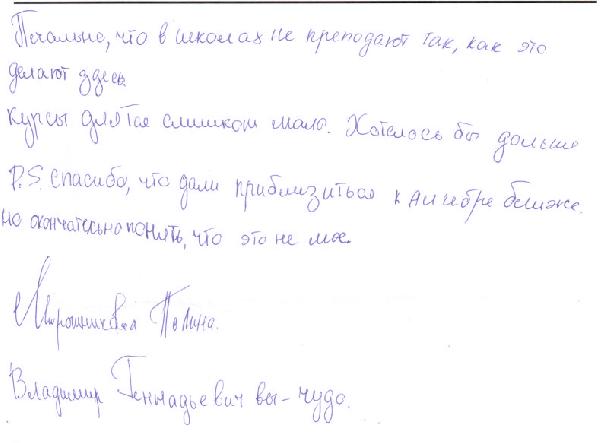 Печально, что в школах не преподают так, как это
делают здесь.
Курсы длятся слишком мало. Хотелось бы дольше
P.S Спасибо, что дали приблизиться к алгебре ближе.
но окончательно понять, что это не мое.
Мирошникова Полина.
Владимир Геннадьевич вы - чудо.